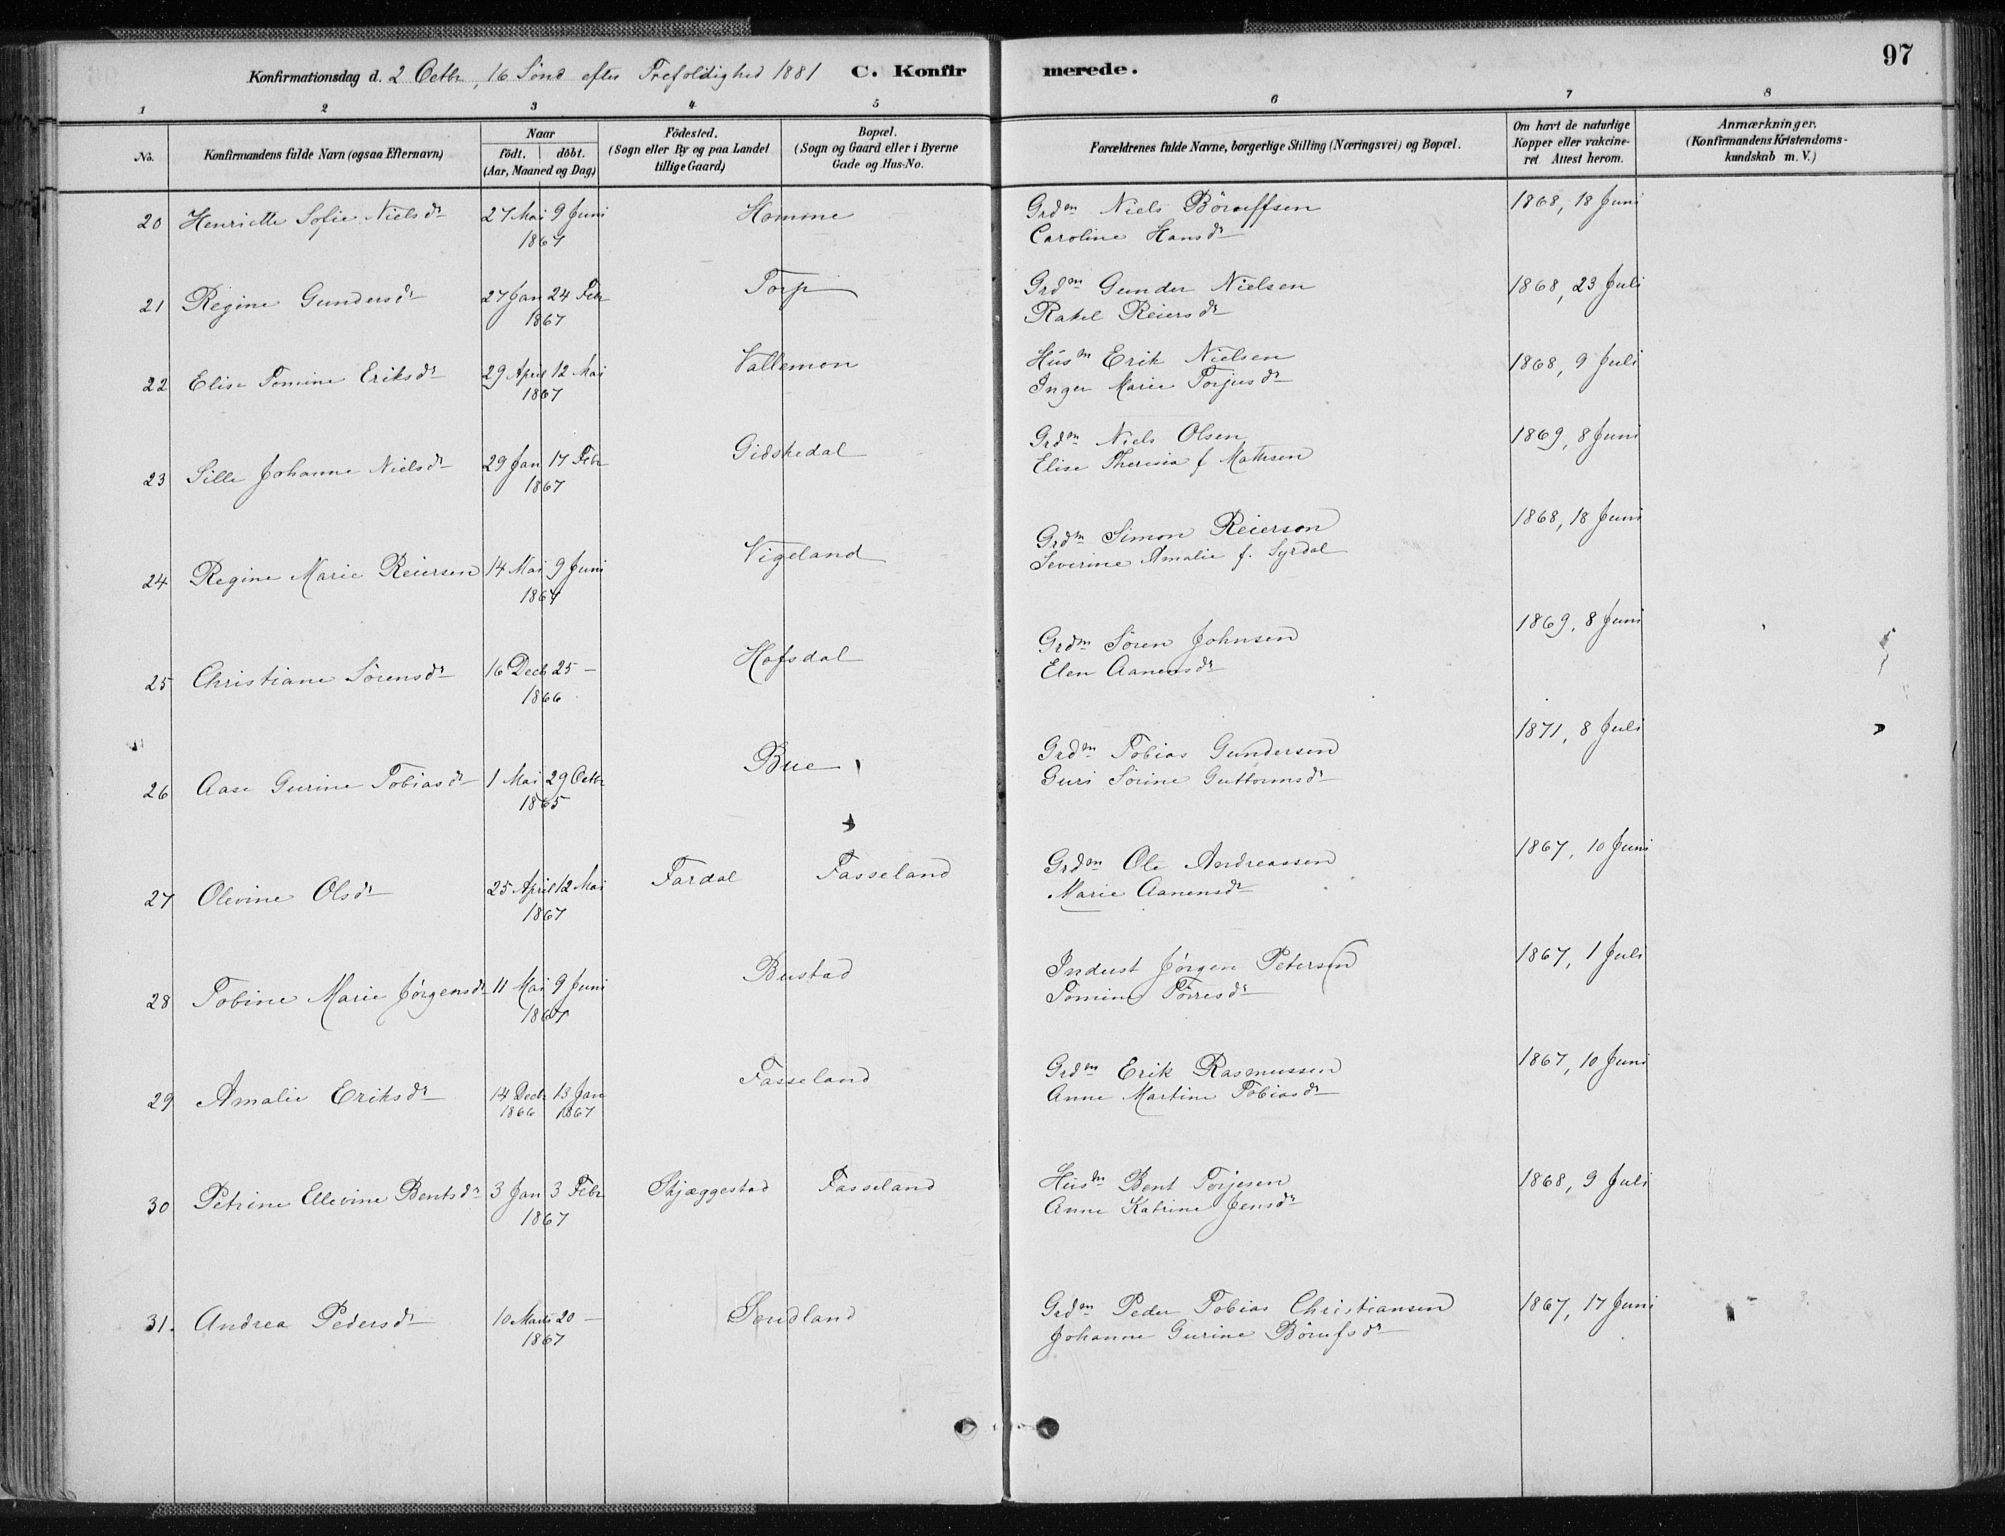 97
Konfirmationsdag d. 2 Octbr, 16 Sønd efter Trefoldighed 1881 C. Konfirmerede.
1 2 3 4 5 6 7 8
No. Konfirmandens fulde Navn (ogsaa Efternavn)
Naar
födt. döbt.
(Aar, Maaned og Dag)
Födested.
(Sogn eller By og paa Landet
tillige Gaard)
Bopæl.
(Sogn og Gaard eller i Byerne
Gade og Hus-No.
Forældrenes fulde Navne, borgerlige Stilling (Næringsvei) og Bopæl.
Om havt de naturlige
Kopper eller vakcine-
ret Attest herom.
Anmærkninger.
(Konfirmandens Kristendoms-
kundskab m. V.)
20 Henriette Sofie Nielsdr 27 Mai 9 Juni Homme Grdm Niels Børuffsen 1868, 18 Juni
1867 Caroline Hansdr
21 Regine Gundersdr 27 Jan 24 Febr Torp Grdm Gunder Nielsen 1868, 23 Juli
1867 Rakel Reiersdr
22 Elise Tomine Eriksdr 29 April 12 Mai Vallemon Husm Erik Nielsen 1868, 9 Juli
1867 Inger Marie Torjusdr
23 Sille Johanne Nielsdr 29 Jan 17 Febr Gidskedal Grdm Niels Olsen 1869, 8 Juni
1867 Elise Theresia f Mathsen
24 Regine Marie Reiersen 14 Mai 9 Juni Vigeland Grdm Simon Reierson 1868, 18 Juni
1867 Severine Amalie f. Syrdal
25 Christiane Sørensdr 16 Decb 25 — Hofsdal Grdm Søren Johnsen 1869, 8 Juni
1866 Elen Aanensdr
26 Aase Gurine Tobiasdr 1 Mai 29 Octbr Bue Grdm Tobias Gundersen 1871, 8 Juli
1865 Guri Sørine Guttormsdr
27 Olevine Olsdr 25 April 12 Mai Fardal Fasseland Grdm Ole Andreassen 1867, 10 Juni
1867 Marie Aanensdr
28 Tobine Marie Jørgensdr 11 Mai 9 Juni Bustad Indust Jørgen Petersen 1867, 1 Juli
1867 Tomine Tørresdr
29 Amalie Eriksdr 14 Decbr 13 Jan Fasseland Grdm Erik Rasmussen 1867, 10 Juni
1866 1867 Anne Martine Tobiasdr
30 Petrine Ellevine Bentsdr 3 Jan 3 Febr Skjæggestad Fasseland Husm Bent Torjesen 1868, 9 Juli
1867 Anne Katrine Jensdr
31. Andrea Pedersdr 10 Marts 20 — Sondland Grdm Peder Tobias Christiansen 1867, 17 Juni
1867 Johanne Gurine Børufsdr